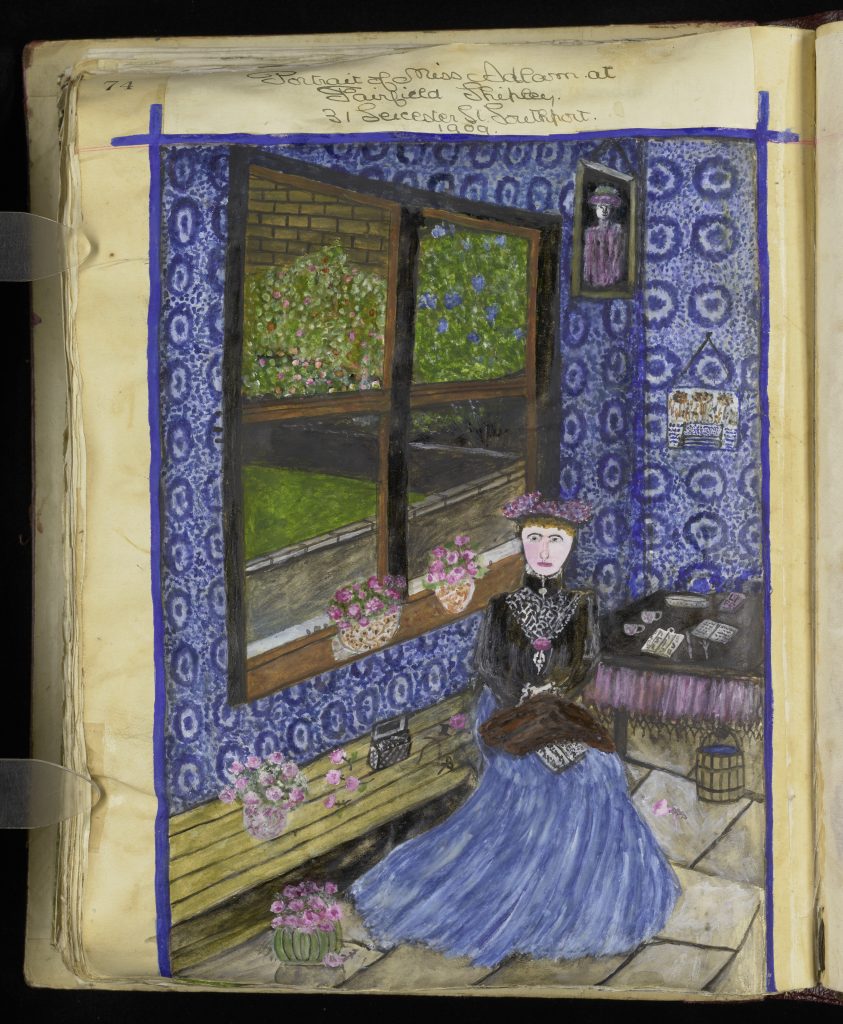 74
Portrait of Miss Adlam at
Fairfield Shipley.
31 Leicester St Southport.
1909.